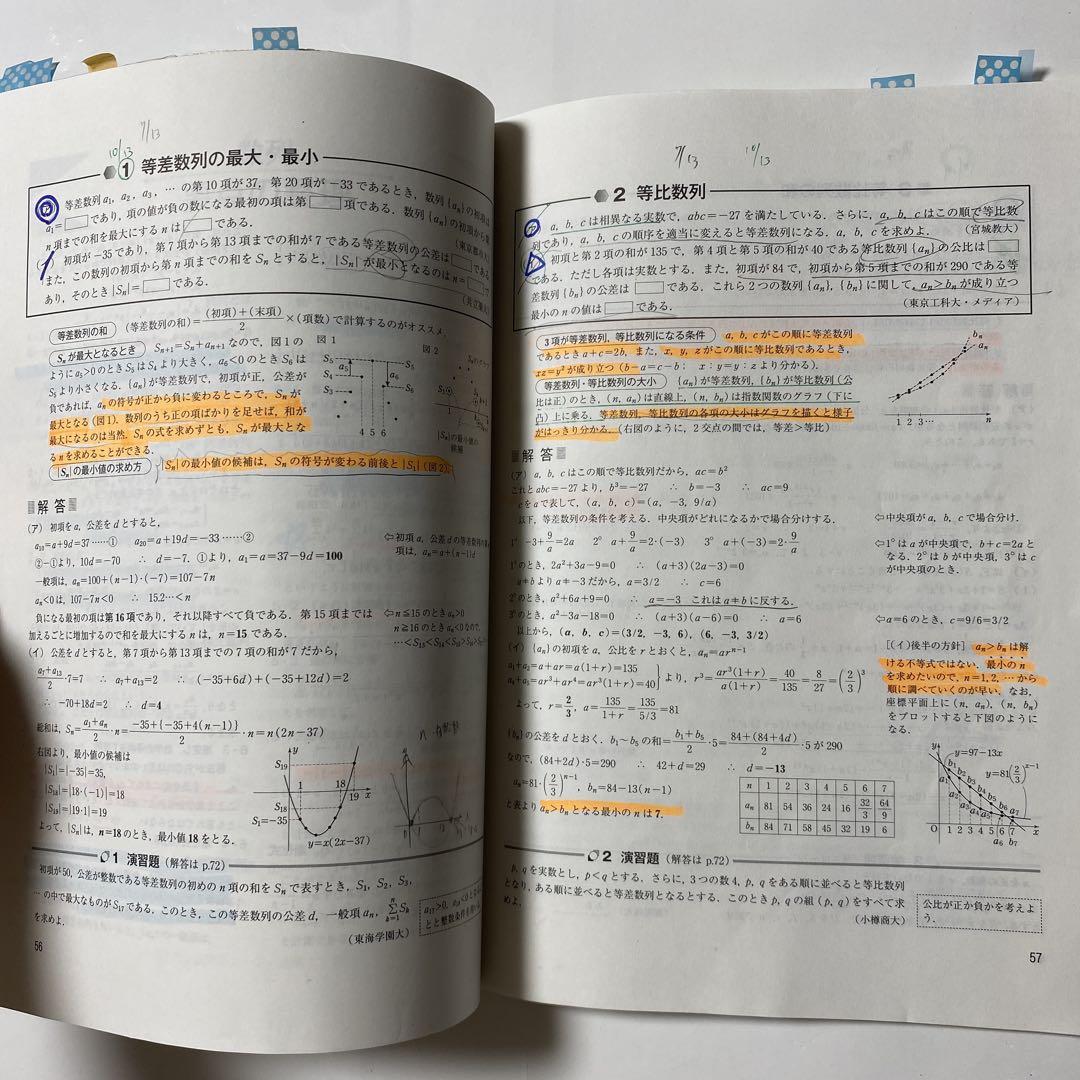 10/13 7/13
1 等差数列の最大・最小
等差数列 a₁, a₂, a₃, … の第10項が37, 第20項が−33であるとき, 数列{aₙ}の初項は
a₁=□であり, 項の値が負の数になる最初の項は第□項である. 数列{aₙ}の初項から第
n項までの和を最大にするnは□である.
初項が−35であり, 第7項から第13項までの和が7である等差数列の公差は□である
また, この数列の初項から第n項までの和をSₙとすると, |Sₙ|が最小となるのはn=□で
あり, そのとき|Sₙ|=□である.
等差数列の和 (等差数列の和)=(初項)+(末項)/2×(項数)で計算するのがオススメ.
Sₙが最大となるとき Sₙ₊₁=Sₙ+aₙ₊₁なので, 図1の 図1 図2
ようにa₅>0のときS₅はS₄より大きく, a₆<0のときS₆は
S₅より小さくなる. {aₙ}が等差数列で, 初項が正, 公差が
負であれば, aₙの符号が正から負に変わるところで, Sₙが
最大となる(図1). 数列のうち正の項ばかりを足せば, 和が
最大になるのは当然. Sₙの式を求めずとも, Sₙが最大とな
るnを求めることができる.
S₅ a₅ S₄ S₆ 4 5 6
|Sₙ|の最小値の候補
|Sₙ|の最小値の求め方 |Sₙ|の最小値の候補は, Sₙの符号が変わる前後と|S₁|(図2).
解答
(ア) 初項をa, 公差をdとすると,
a₁₀=a+9d=37 ……① a₂₀=a+19d=−33 ……②
②−①より, 10d=−70 ∴ d=−7. ①より, a₁=a=37−9d=100
一般項は, aₙ=100+(n−1)・(−7)=107−7n
aₙ<0は, 107−7n<0 ∴ 15.2…<n
負になる最初の項は第16項であり, それ以降すべて負である. 第15項までは
加えるごとに増加するので和を最大にするnは, n=15である.
⇦初項a, 公差dの等差数列の第n
項は, aₙ=a+(n−1)d
⇦n≦15のときaₙ>0
n≧16のときaₙ<0なので,
…<S₁₃<S₁₄<S₁₅>S₁₆>
(イ) 公差をdとすると, 第7項から第13項までの7項の和が7だから,
a₇+a₁₃/2・7=7 ∴ a₇+a₁₃=2 ∴ (−35+6d)+(−35+12d)=2
∴ −70+18d=2 ∴ d=4
総和は, Sₙ=a₁+aₙ/2・n=−35+{−35+4(n−1)}/2・n=n(2n−37)
右図より, 最小値の候補は
|S₁|=|−35|=35,
|S₁₈|=|18・(−1)|=18
|S₁₉|=|19・1|=19
よって, |Sₙ|は, n=18のとき, 最小値18をとる.
y S₁₉ 1 18 19 x S₁₈ S₁=−35 y=x(2x−37)
1 演習題(解答は p.72)
初項が50, 公差が整数である等差数列の初めのn項の和をSₙで表すとき, S₁, S₂, S₃,
…の中で最大なものがS₁₇である. このとき, この等差数列の公差d, 一般項aₙ, Σₖ₌₁ⁿ Sₖ
を求めよ.
(東海学園大)
56
7/13 10/13
2 等比数列
a, b, cは相異なる実数で, abc=−27を満たしている. さらに, a, b, cはこの順で等比数
列であり, a, b, cの順序を適当に変えると等差数列になる. a, b, cを求めよ. (宮城教大)
初項と第2項の和が135で, 第4項と第5項の和が40である等比数列{aₙ}の公比は□
である. ただし各項は実数とする. また, 初項が84で, 初項から第5項までの和が290である等
差数列{bₙ}の公差は□である. これら2つの数列{aₙ}, {bₙ}に関して, aₙ>bₙが成り立つ
最小のnの値は□である. (東京工科大・メディア)
3項が等差数列, 等比数列になる条件 a, b, cがこの順に等差数列
であるときa+c=2b, また, x, y, zがこの順に等比数列であるとき,
xz=y²が成り立つ(b−a=c−b; x:y=y:zより分かる).
等差数列・等比数列の大小 {aₙ}が等差数列, {bₙ}が等比数列(公
比は正)のとき, (n, aₙ)は直線上, (n, bₙ)は指数関数のグラフ(下に
凸)上に乗る. 等差数列, 等比数列の各項の大小はグラフを描くと様子
がはっきり分かる. (右図のように, 2交点の間では, 等差>等比)
bₙ aₙ 1 2 3…
解答
(ア) a, b, cはこの順で等比数列だから, ac=b²
これとabc=−27より, b³=−27 ∴ b=−3 ∴ ac=9
cをaで表して, (a, b, c)=(a, −3, 9/a)
以下, 等差数列の条件を考える. 中央項がどれになるかで場合分けする.
1° −3+9/a=2a 2° a+9/a=2・(−3) 3° a+(−3)=2・9/a
1°のとき, 2a²+3a−9=0 ∴ (a+3)(2a−3)=0
a≠bよりa≠−3だから, a=3/2 ∴ c=6
2°のとき, a²+6a+9=0 ∴ a=−3 これはa≠bに反する.
3°のとき, a²−3a−18=0 ∴ (a+3)(a−6)=0 ∴ a=6
以上から, (a, b, c)=(3/2, −3, 6), (6, −3, 3/2)
⇦中央項がa, b, cで場合分け.
⇦1°はaが中央項で, b+c=2aと
なる. 2°はbが中央項, 3°はc
が中央項のとき.
⇦a=6のとき, c=9/6=3/2
(イ) {aₙ}の初項をa, 公比をrとおくと, aₙ=arⁿ⁻¹
a₁+a₂=a+ar=a(1+r)=135
a₄+a₅=ar³+ar⁴=ar³(1+r)=40 より, r³=ar³(1+r)/a(1+r)=40/135=8/27=(2/3)³
よって, r=2/3, a=135/1+r=135/5/3=81
{bₙ}の公差をdとおく, b₁~b₅の和=b₁+b₅/2・5=84+(84+4d)/2・5が290
なので, (84+2d)・5=290 ∴ 42+d=29 ∴ d=−13
aₙ=81・(2/3)ⁿ⁻¹, bₙ=84−13(n−1)
と表よりaₙ>bₙとなる最小のnは7.
n 1 2 3 4 5 6 7
aₙ 81 54 36 24 16 32/3 64/9
bₙ 84 71 58 45 32 19 6
[(イ)後半の方針] aₙ>bₙは解
ける不等式ではない. 最小のn
を求めたいので, n=1, 2, …から
順に調べていくのが早い. なお,
座標平面上に(n, aₙ), (n, bₙ)
をプロットすると下図のように
なる.
y y=97−13x y=81(2/3)ˣ⁻¹
b₁ b₂ b₃ b₄ b₅ b₆ a₇
a₁ a₂ a₃ a₄ a₅
O 1 2 3 4 5 6 7 x
a₆ b₇
2 演習題(解答は p.72)
p, qを実数とし, p<qとする. さらに, 3つの数4, p, qをある順に並べると等比数列
となり, ある順に並べると等差数列となるとする. このときp, qの組(p, q)をすべて求
めよ. (小樽商大)
公比が正か負かを考えよ
う.
57